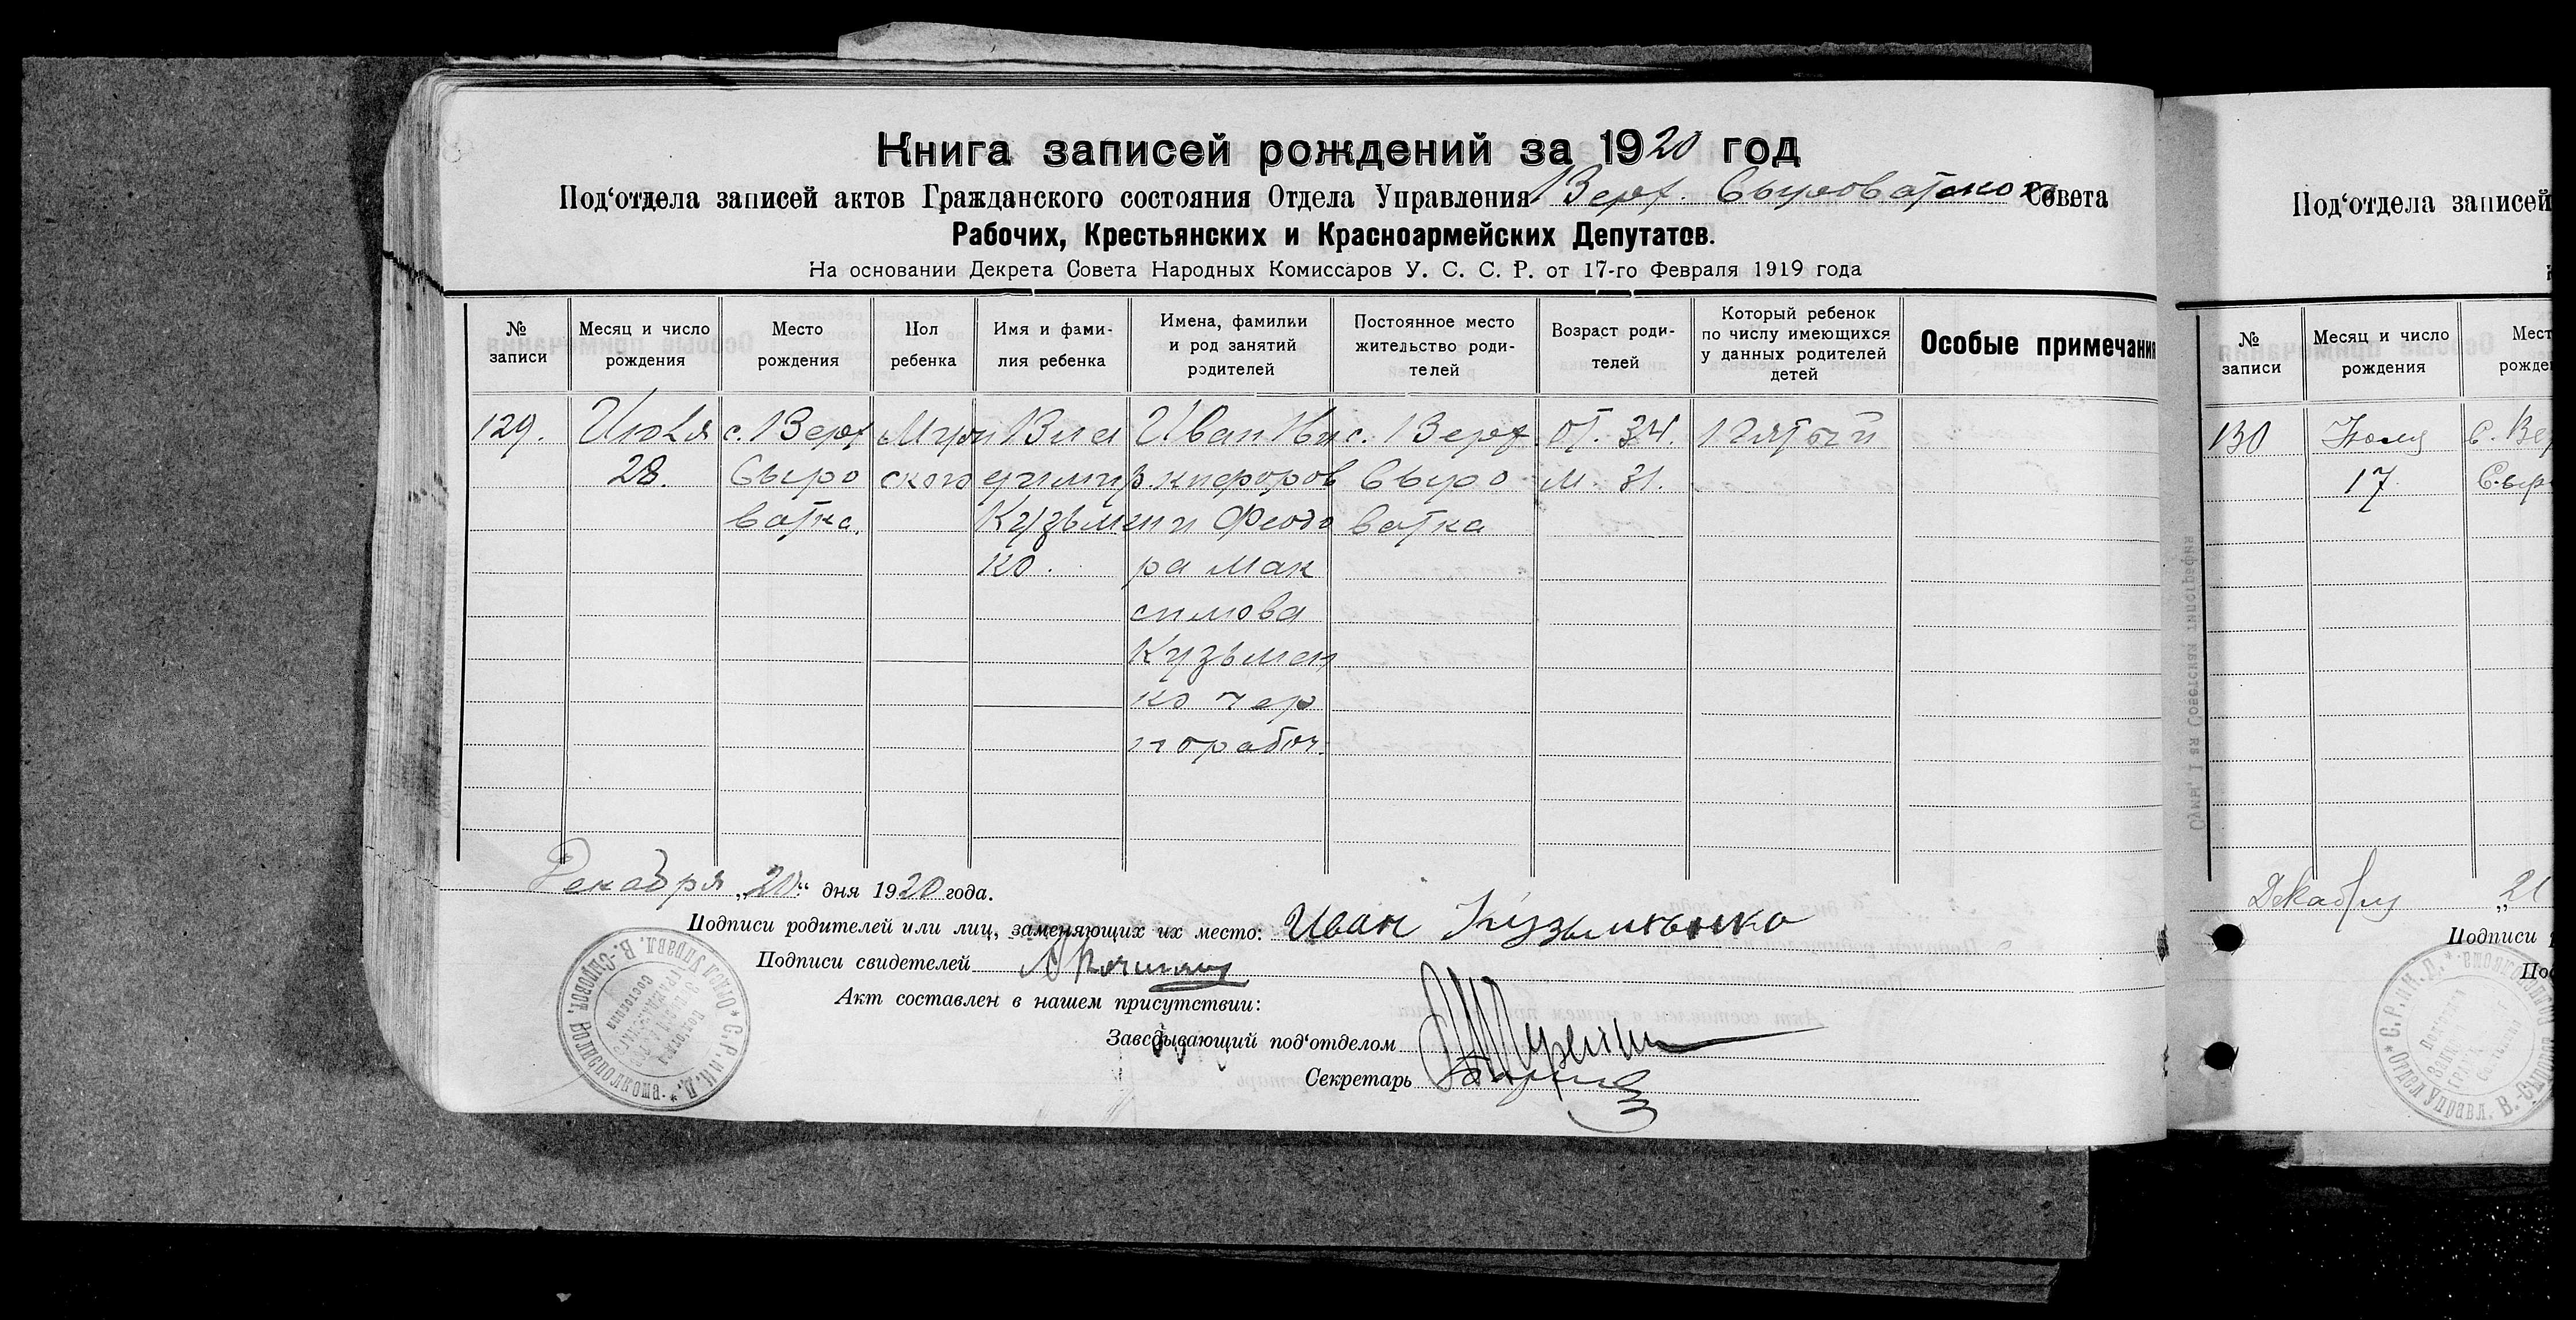 Книга записей рождений за 1920 год
Под‘отдела записей актов Гражданского состояния Отдела Управления Верх. Сыроватского Совета
Рабочих, Крестьянских и Красноармейских Депутатов.
На основании Декрета Совета Народных Комиссаров У. С. С. Р. от 17-го Февраля 1919 года
№ записи
Месяц и число рождения
Место рождения
Пол ребенка
Имя и фами-
лия ребенка
Имена, фамилии
и род занятий
родителей
Постоянное место
жительство роди-
телей
Возраст роди-
телей
Который ребенок
по числу имеющихся
у данных родителей
детей
Особые примечания
129.
Июля
28.
с. Верх
Сыро
ватка.
Муж
ского
Вла
димир
Кузьмен
ко.
Иван Ни
кифоров
и Феодо
ра Мак
симова
Кузьмен
ко чер
норабоч.
с. Верх
Сыро
ватка
от. 34.
м. 31.
Пятый
Декабря „20“ дня 1920 года.
Подписи родителей или лиц, заменяющих их место: Иван Кузьменко
Подписи свидетелей
Акт составлен в нашем присутствии:
Заведывающий под‘отделом
Секретарь
* С.Р. и К.Д. * Отдел Управл. В.-Сыроват. Волисполкома
Под‘отдела записей
№ записи
Месяц и число
рождения
130
Июля
17
С. Вер
Сыр
Декабря „21
Подписи
Сумы, 1 ая Советская типография